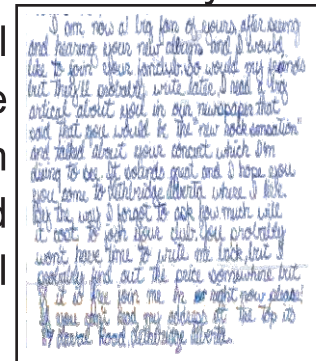 I am now a big fan of yours, after seeing
and hearing your new albums and I would
like to join your fanclub. So would my friends
but they'll probably write later, I read a big
artical about you in our newspaper that
said that you would be the "new rock sensation"
and talked about your concert which I'm
dieing to see. It sounds great and I hope you
you come to Lethbridge Alberta where I live.
By the way I forgot to ask how much will
it cost to join your club. You probably
wont have time to write me back, but I
probably find out the price somewhere but
if it is free join me in right now please!
If you can't read my address at the top its
Road, Lethbridge Alberta.